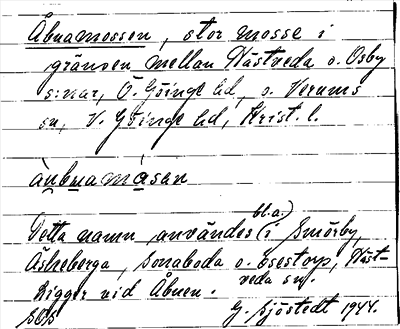 Åbnamossen, stor mosse i
gränsen mellan Hästveda o. Osby
s:nar, Ö. Göinge hd, o. Verums
sn, V. Göinge hd, Krist. l.
ànbnamásan
Detta namn användes (bl.a.) i Smörby,
Äskeberga, Sonaboda o. Esestorp, Häst-
veda sn.
Ligger vid Åbnen.
G. Sjöstedt. 1944.